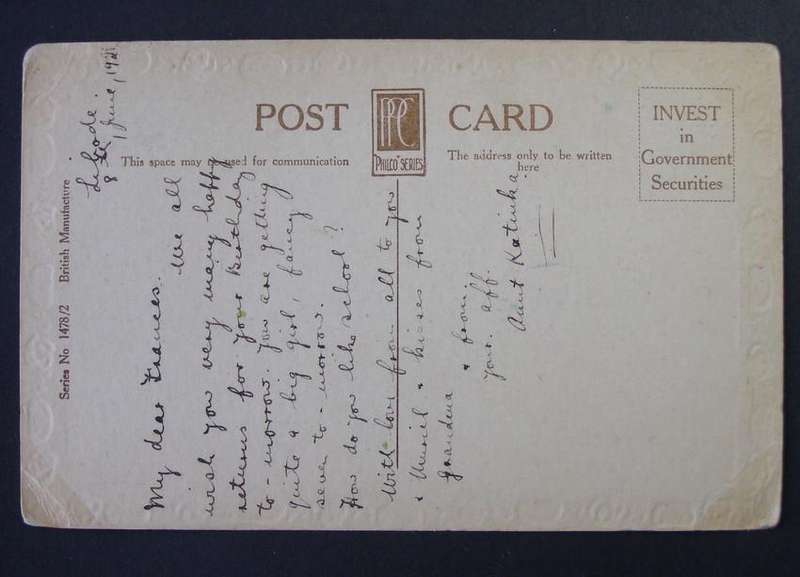 POST
CARD
PPC
"PHILCO" SERIES
This space may be used for communication
The address only to be written
here
INVEST
in
Government
Securities
Series No 1478/2 British Manufacture
Libode.
8th, June, 1921
My dear Frances.
We all
wish you very many happy
returns for your Birthday
to-morrow. You are getting
quite a big girl, fancy
seven to-morrow.
How do you like school?
With love from all to you
& Muriel & kisses from
Grandma
& from
your aff.
Aunt Katinka.